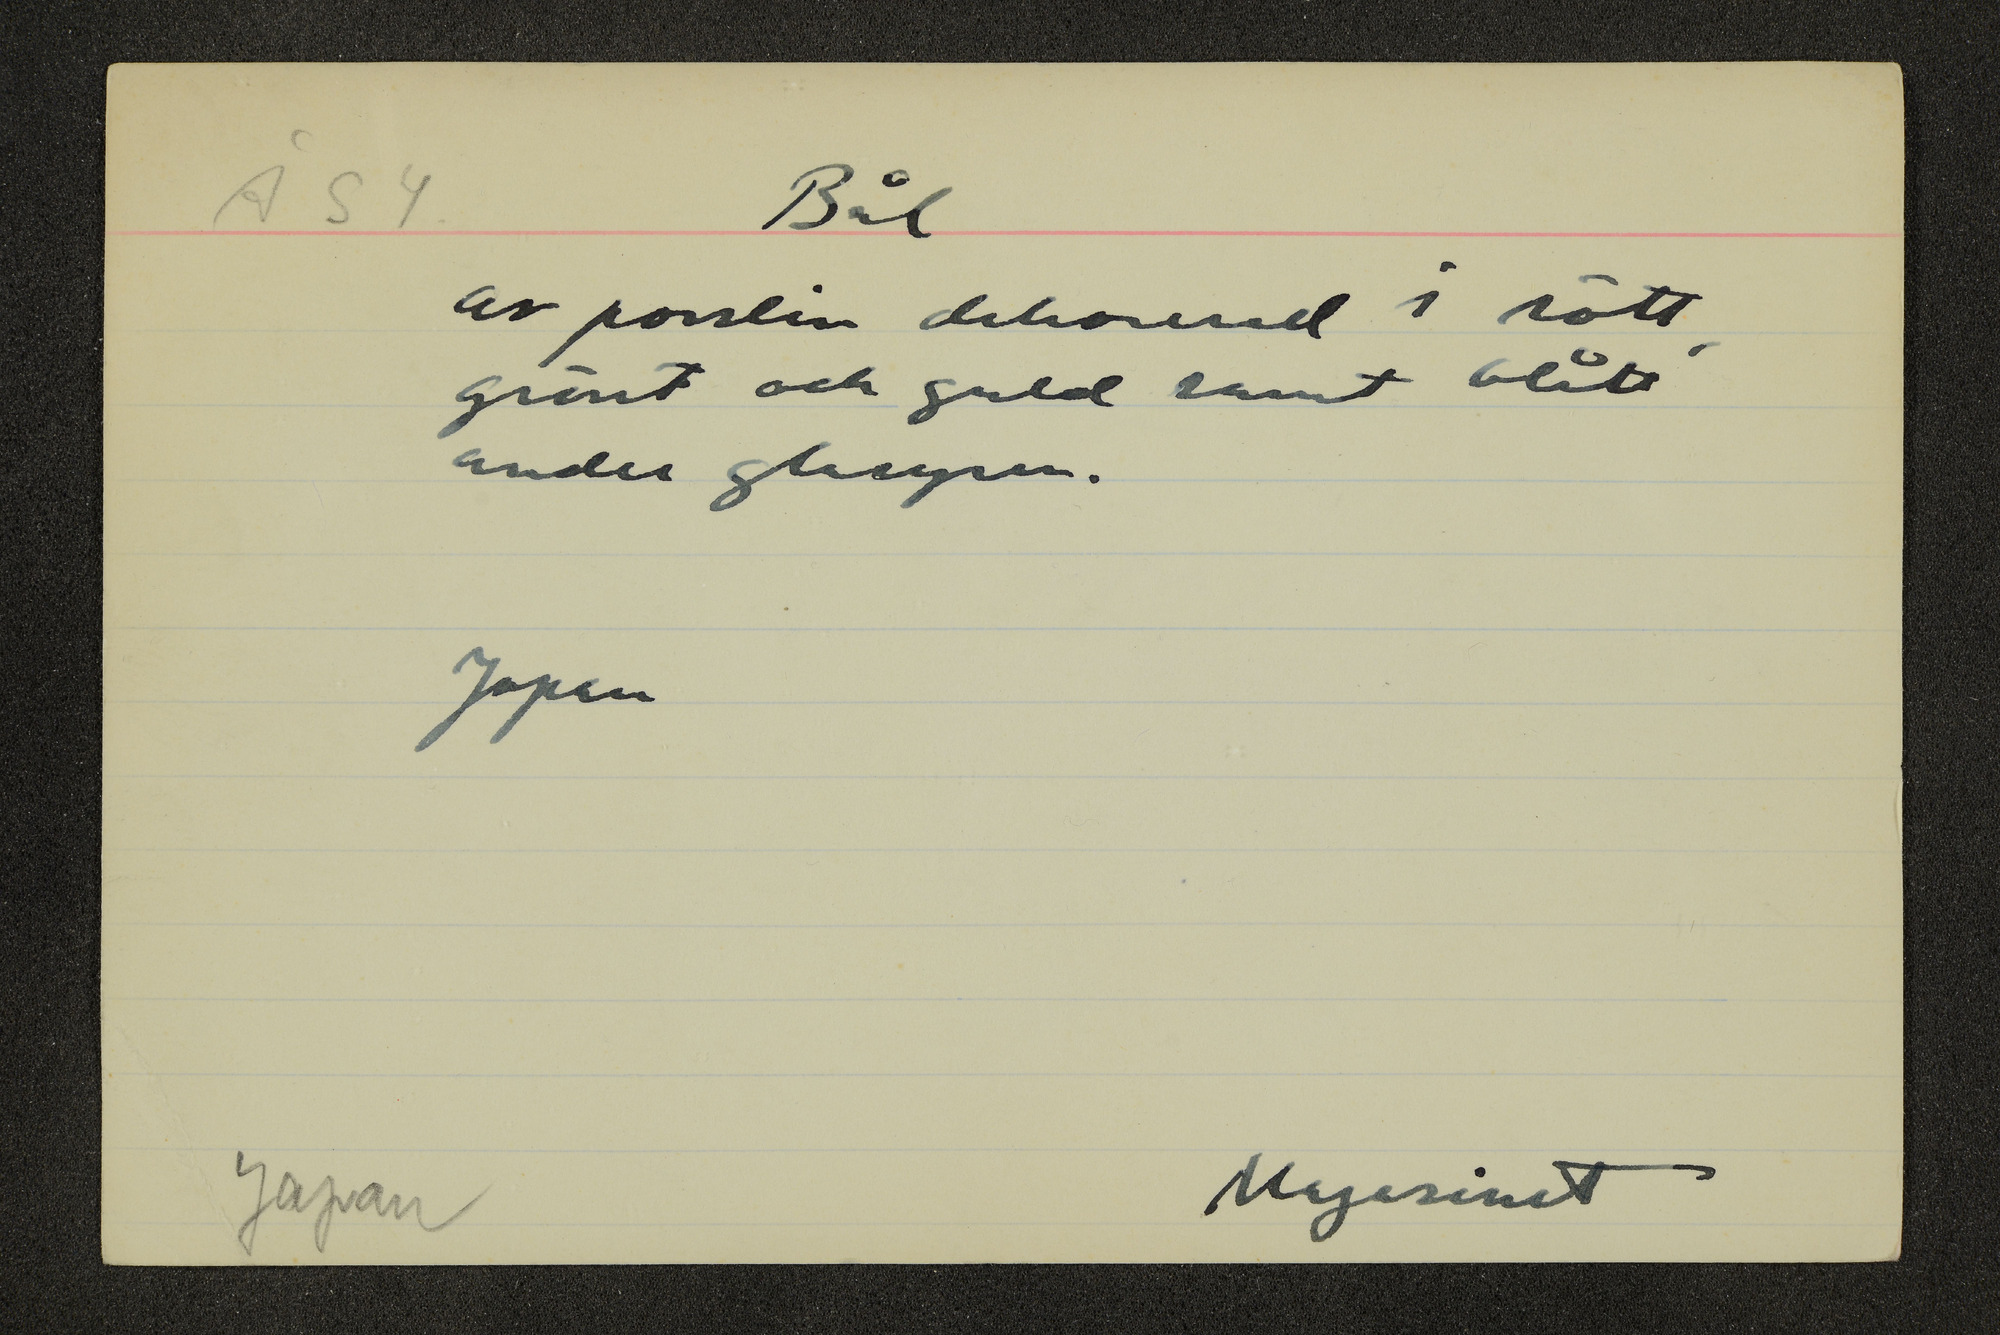 Å S 4.
Bål
av porslin dekorerad i rött,
grönt och guld samt blått
under glasyren.
Japan
Japan
Magasinet